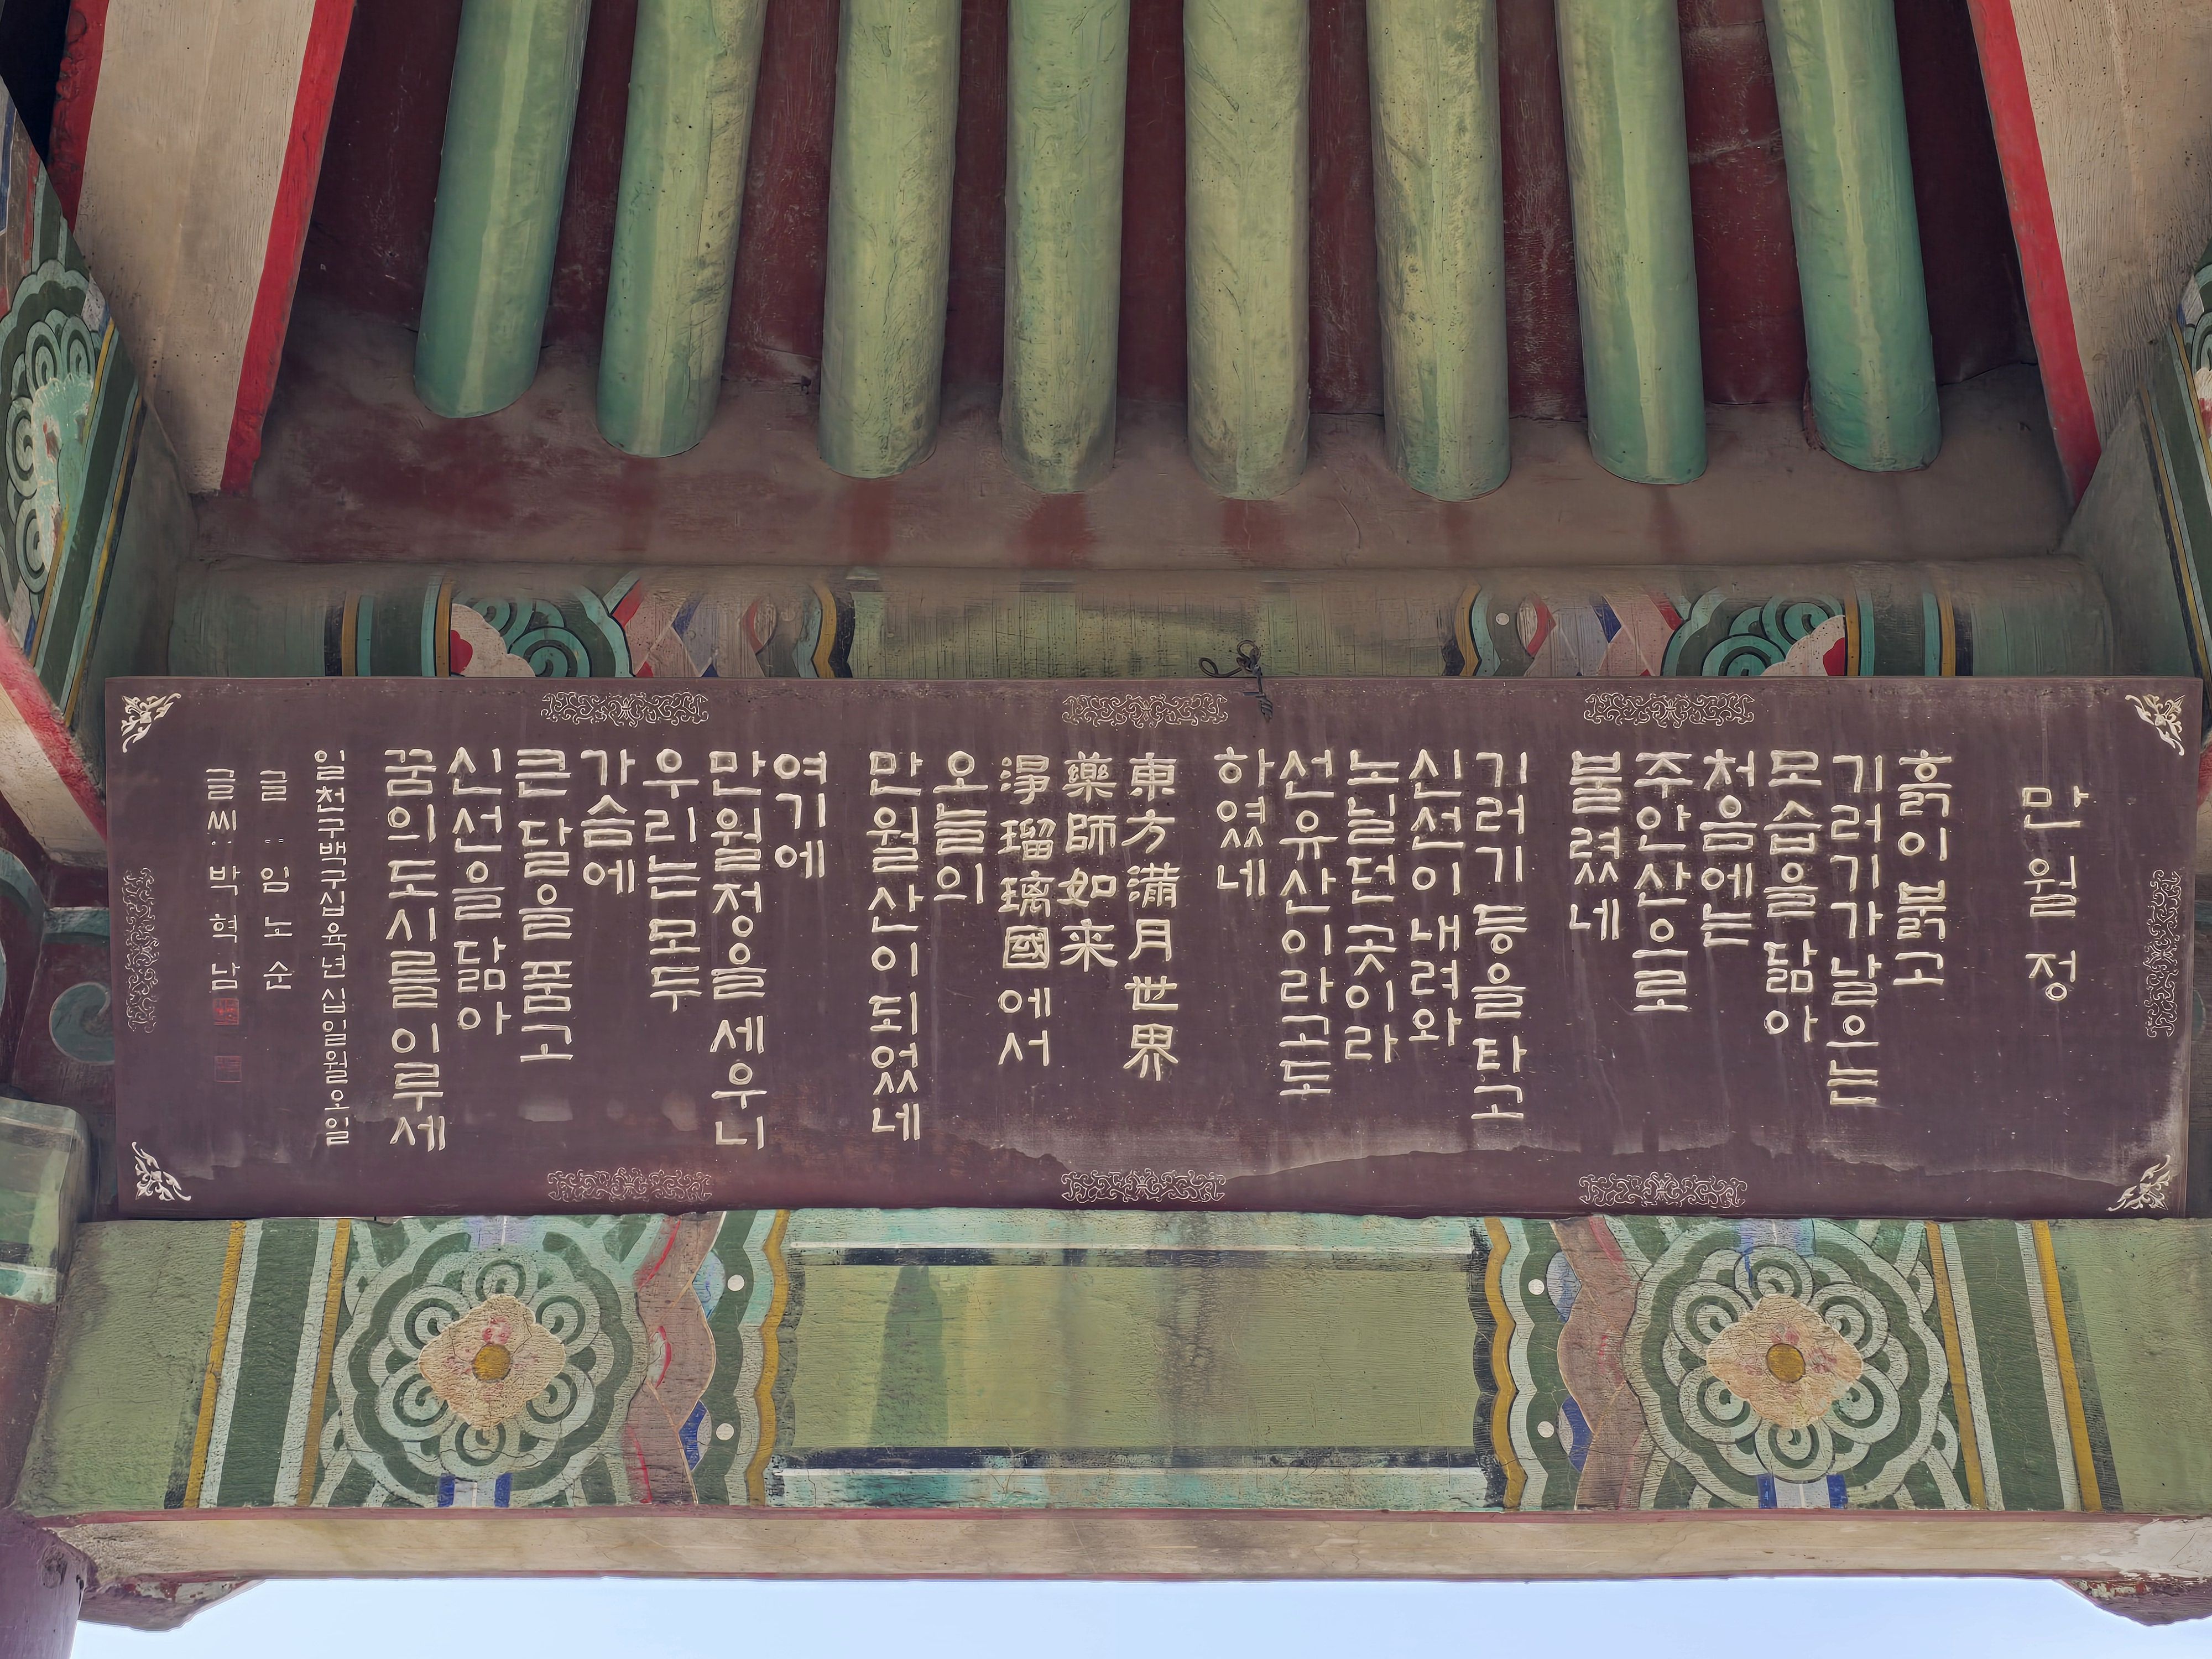 만월정
흙이 붉고
기러기가 날으는
모습을 닮아
처음에는
주안산으로
불렸네
기러기 등을 타고
신선이 내려와
노닐던 곳이라
선유산이라고도
하였네
東方滿月世界
藥師如来
淨瑠璃國에서
오늘의
만월산이 되었네
여기에
만월정을 세우니
우리는 모두
가슴에
큰 달을 품고
신선을 닮아
꿈의 도시를 이루세
일천구백구십육년 십일월 오일
글 : 임노순
글씨 : 박혁남